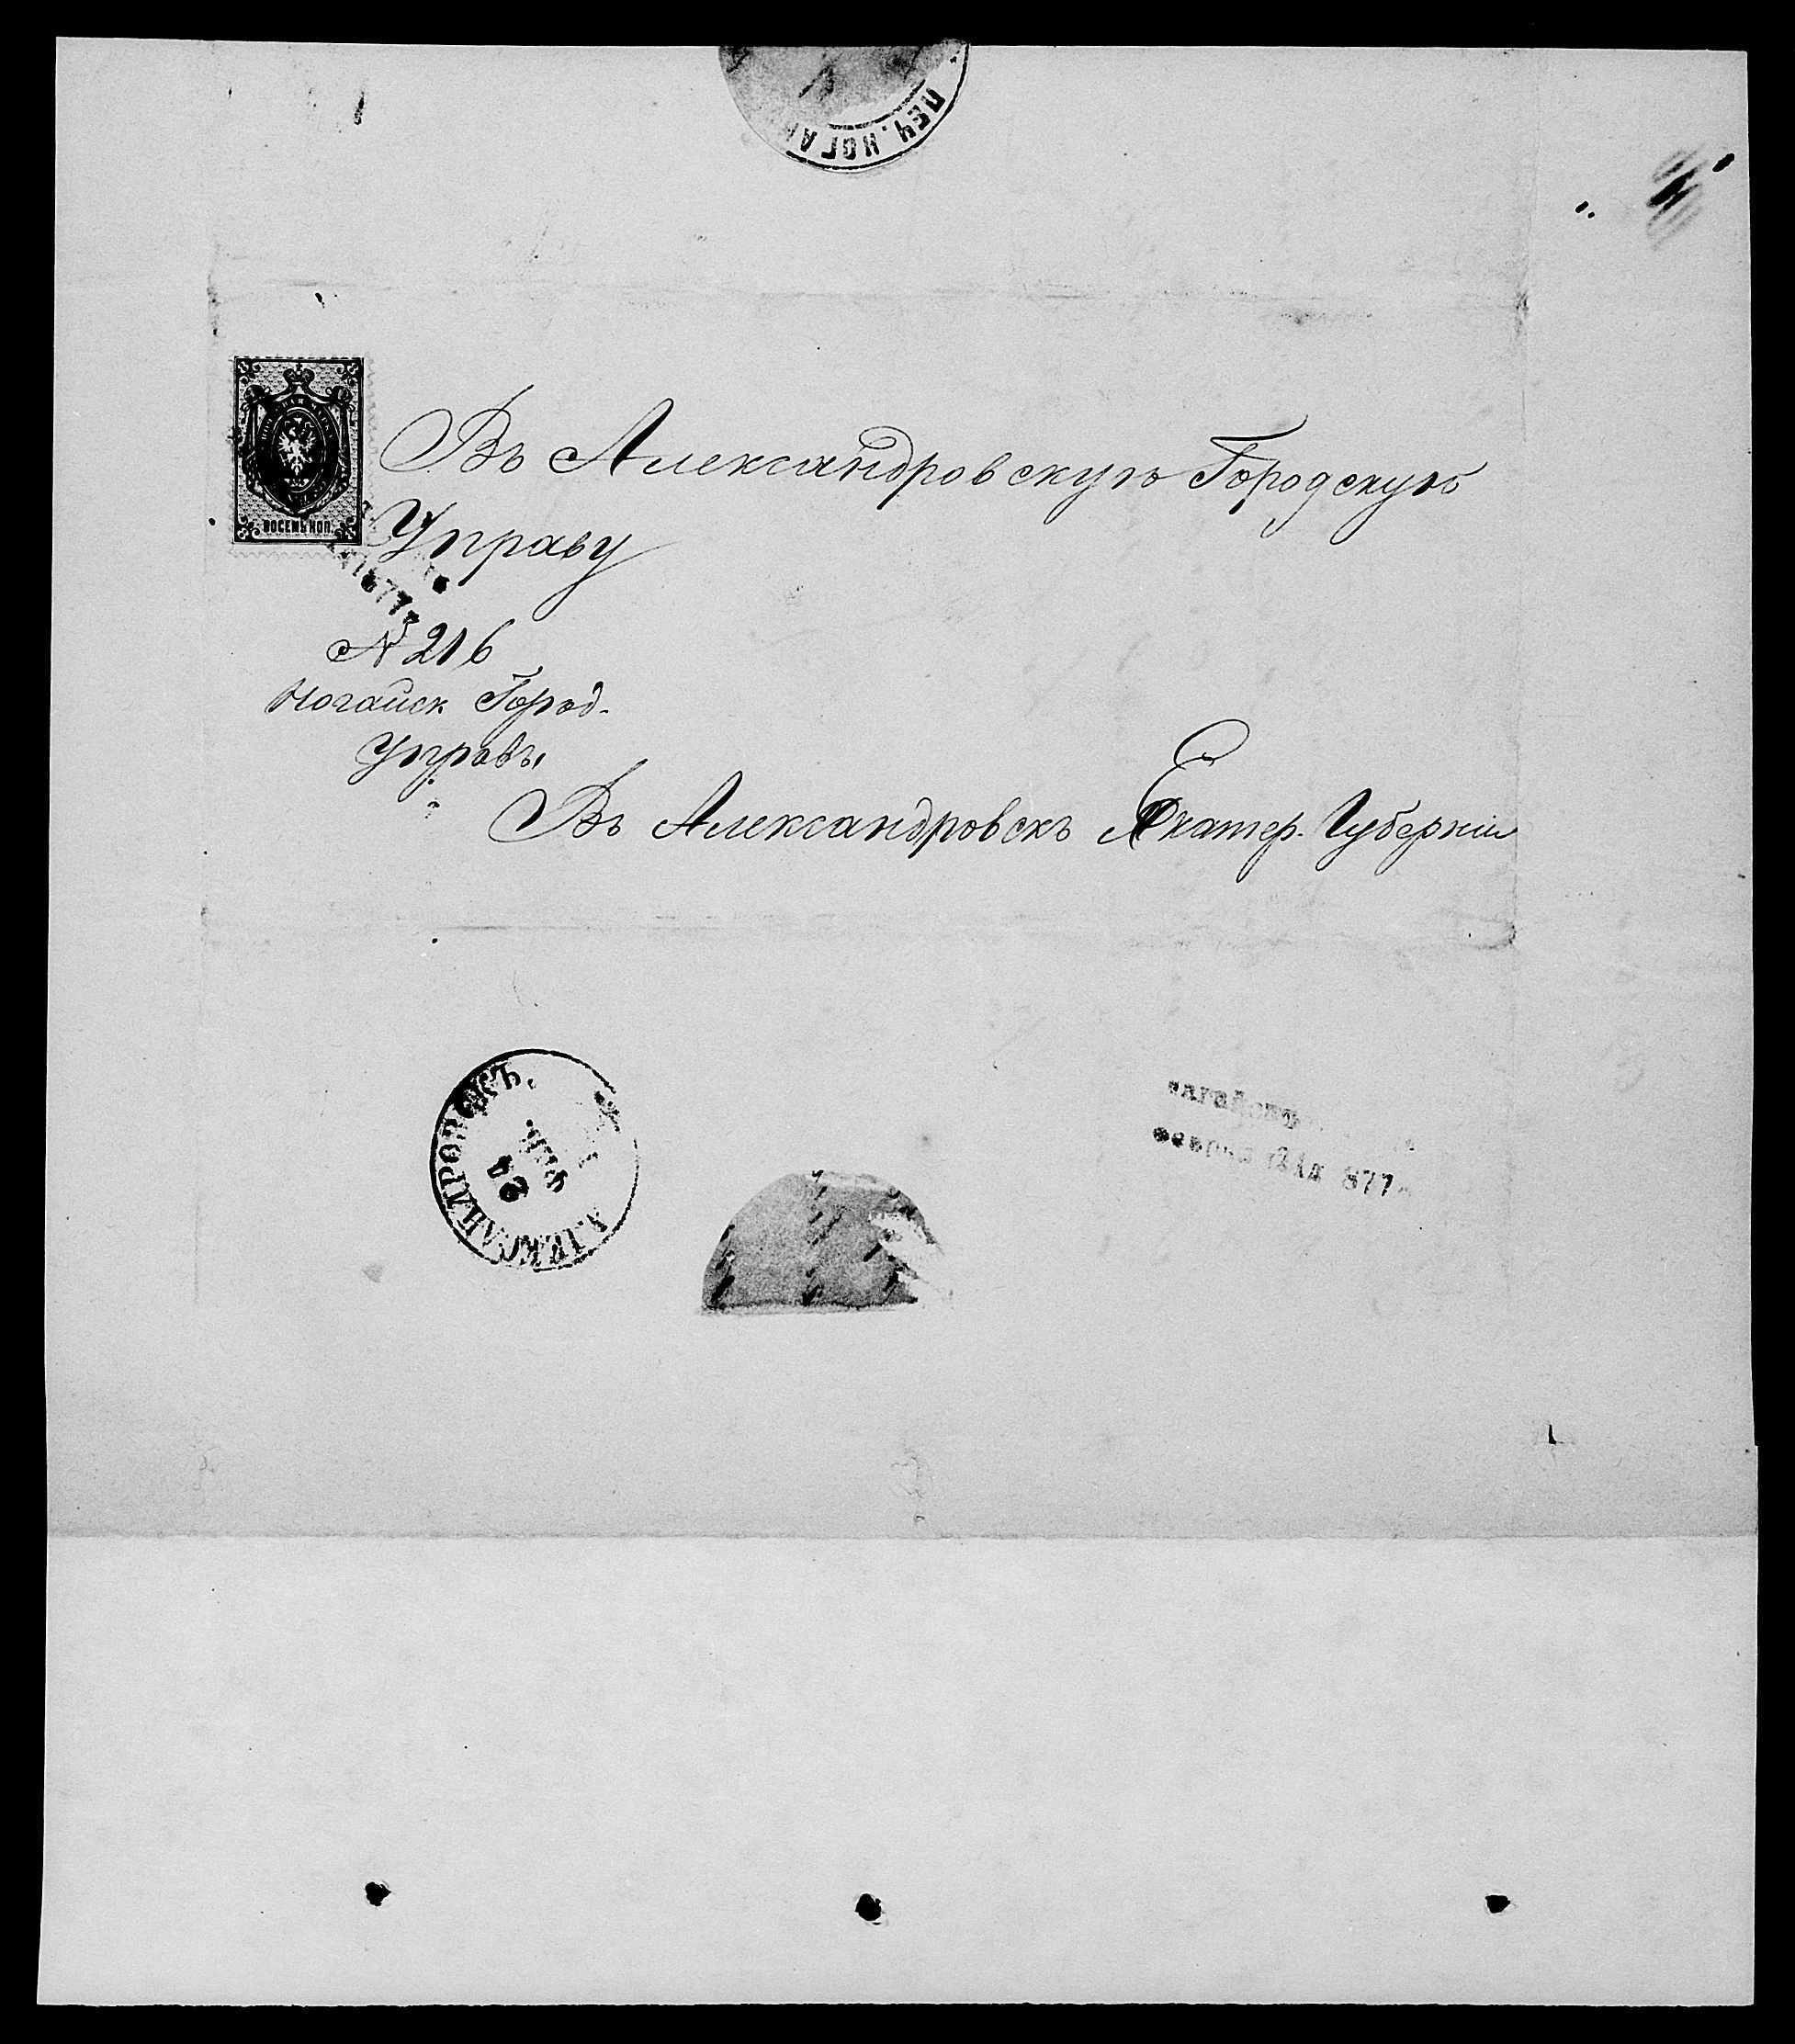 ПЕЧ. НОГА
ВОСЕМЬ КОП.
Въ Александровскую Городскую
Управу
1877
№ 216
Ногайск Город.
Управы
Въ Александровскъ Екатер. Губерніи
АЛЕКСАНДРОВСКЪ,
ФЕВ.
24
877